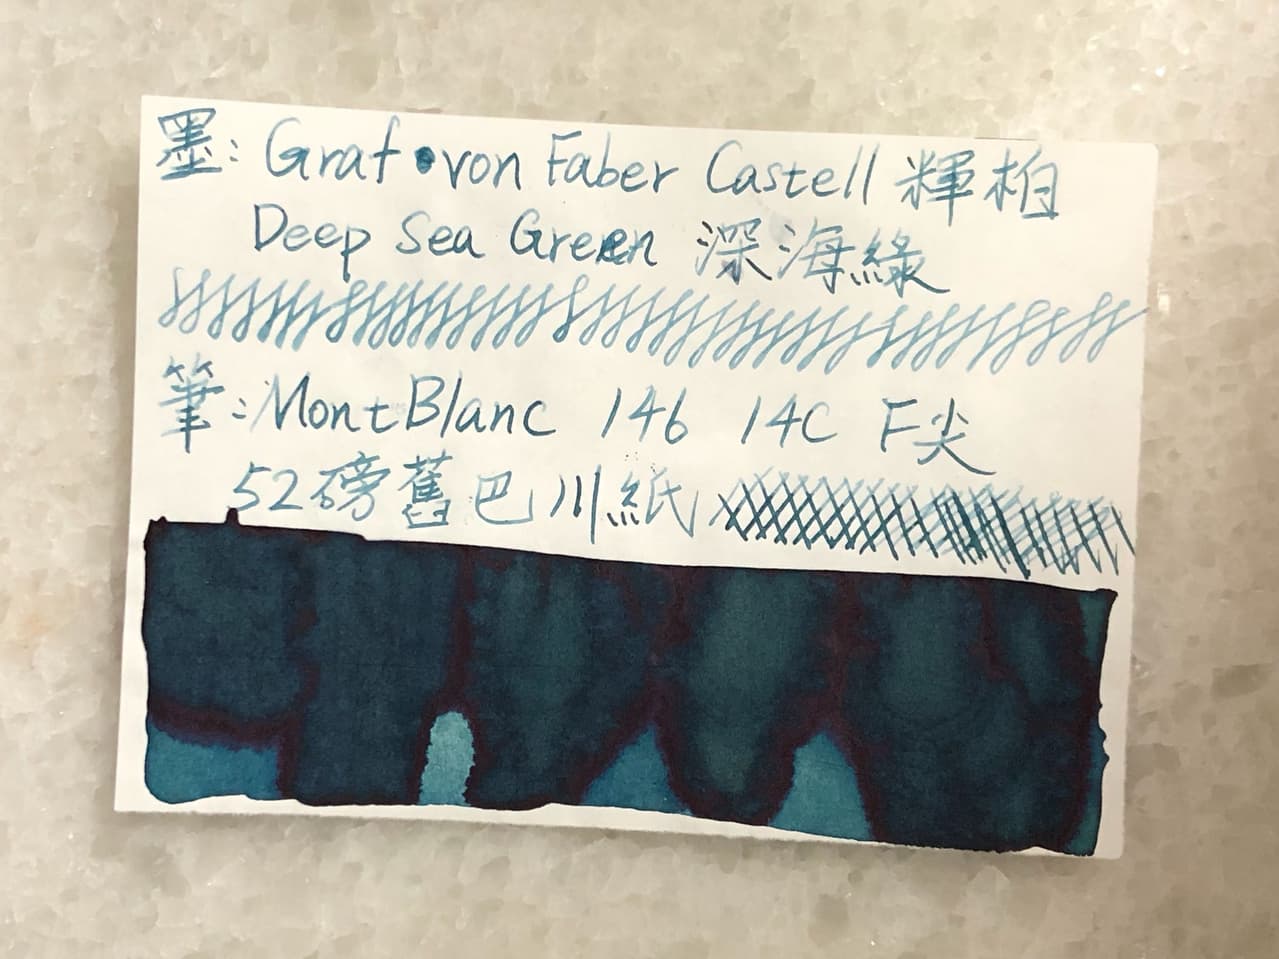 墨: Graf von Faber Castell 輝柏
Deep Sea Green 深海綠
筆: MontBlanc 146 14C F尖
52磅舊巴川紙